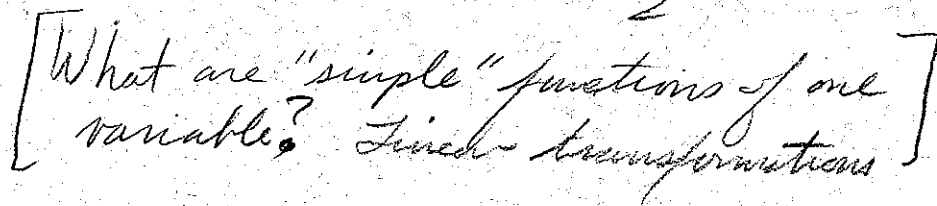 [What are "simple" functions of one
variable? Linear transformations]